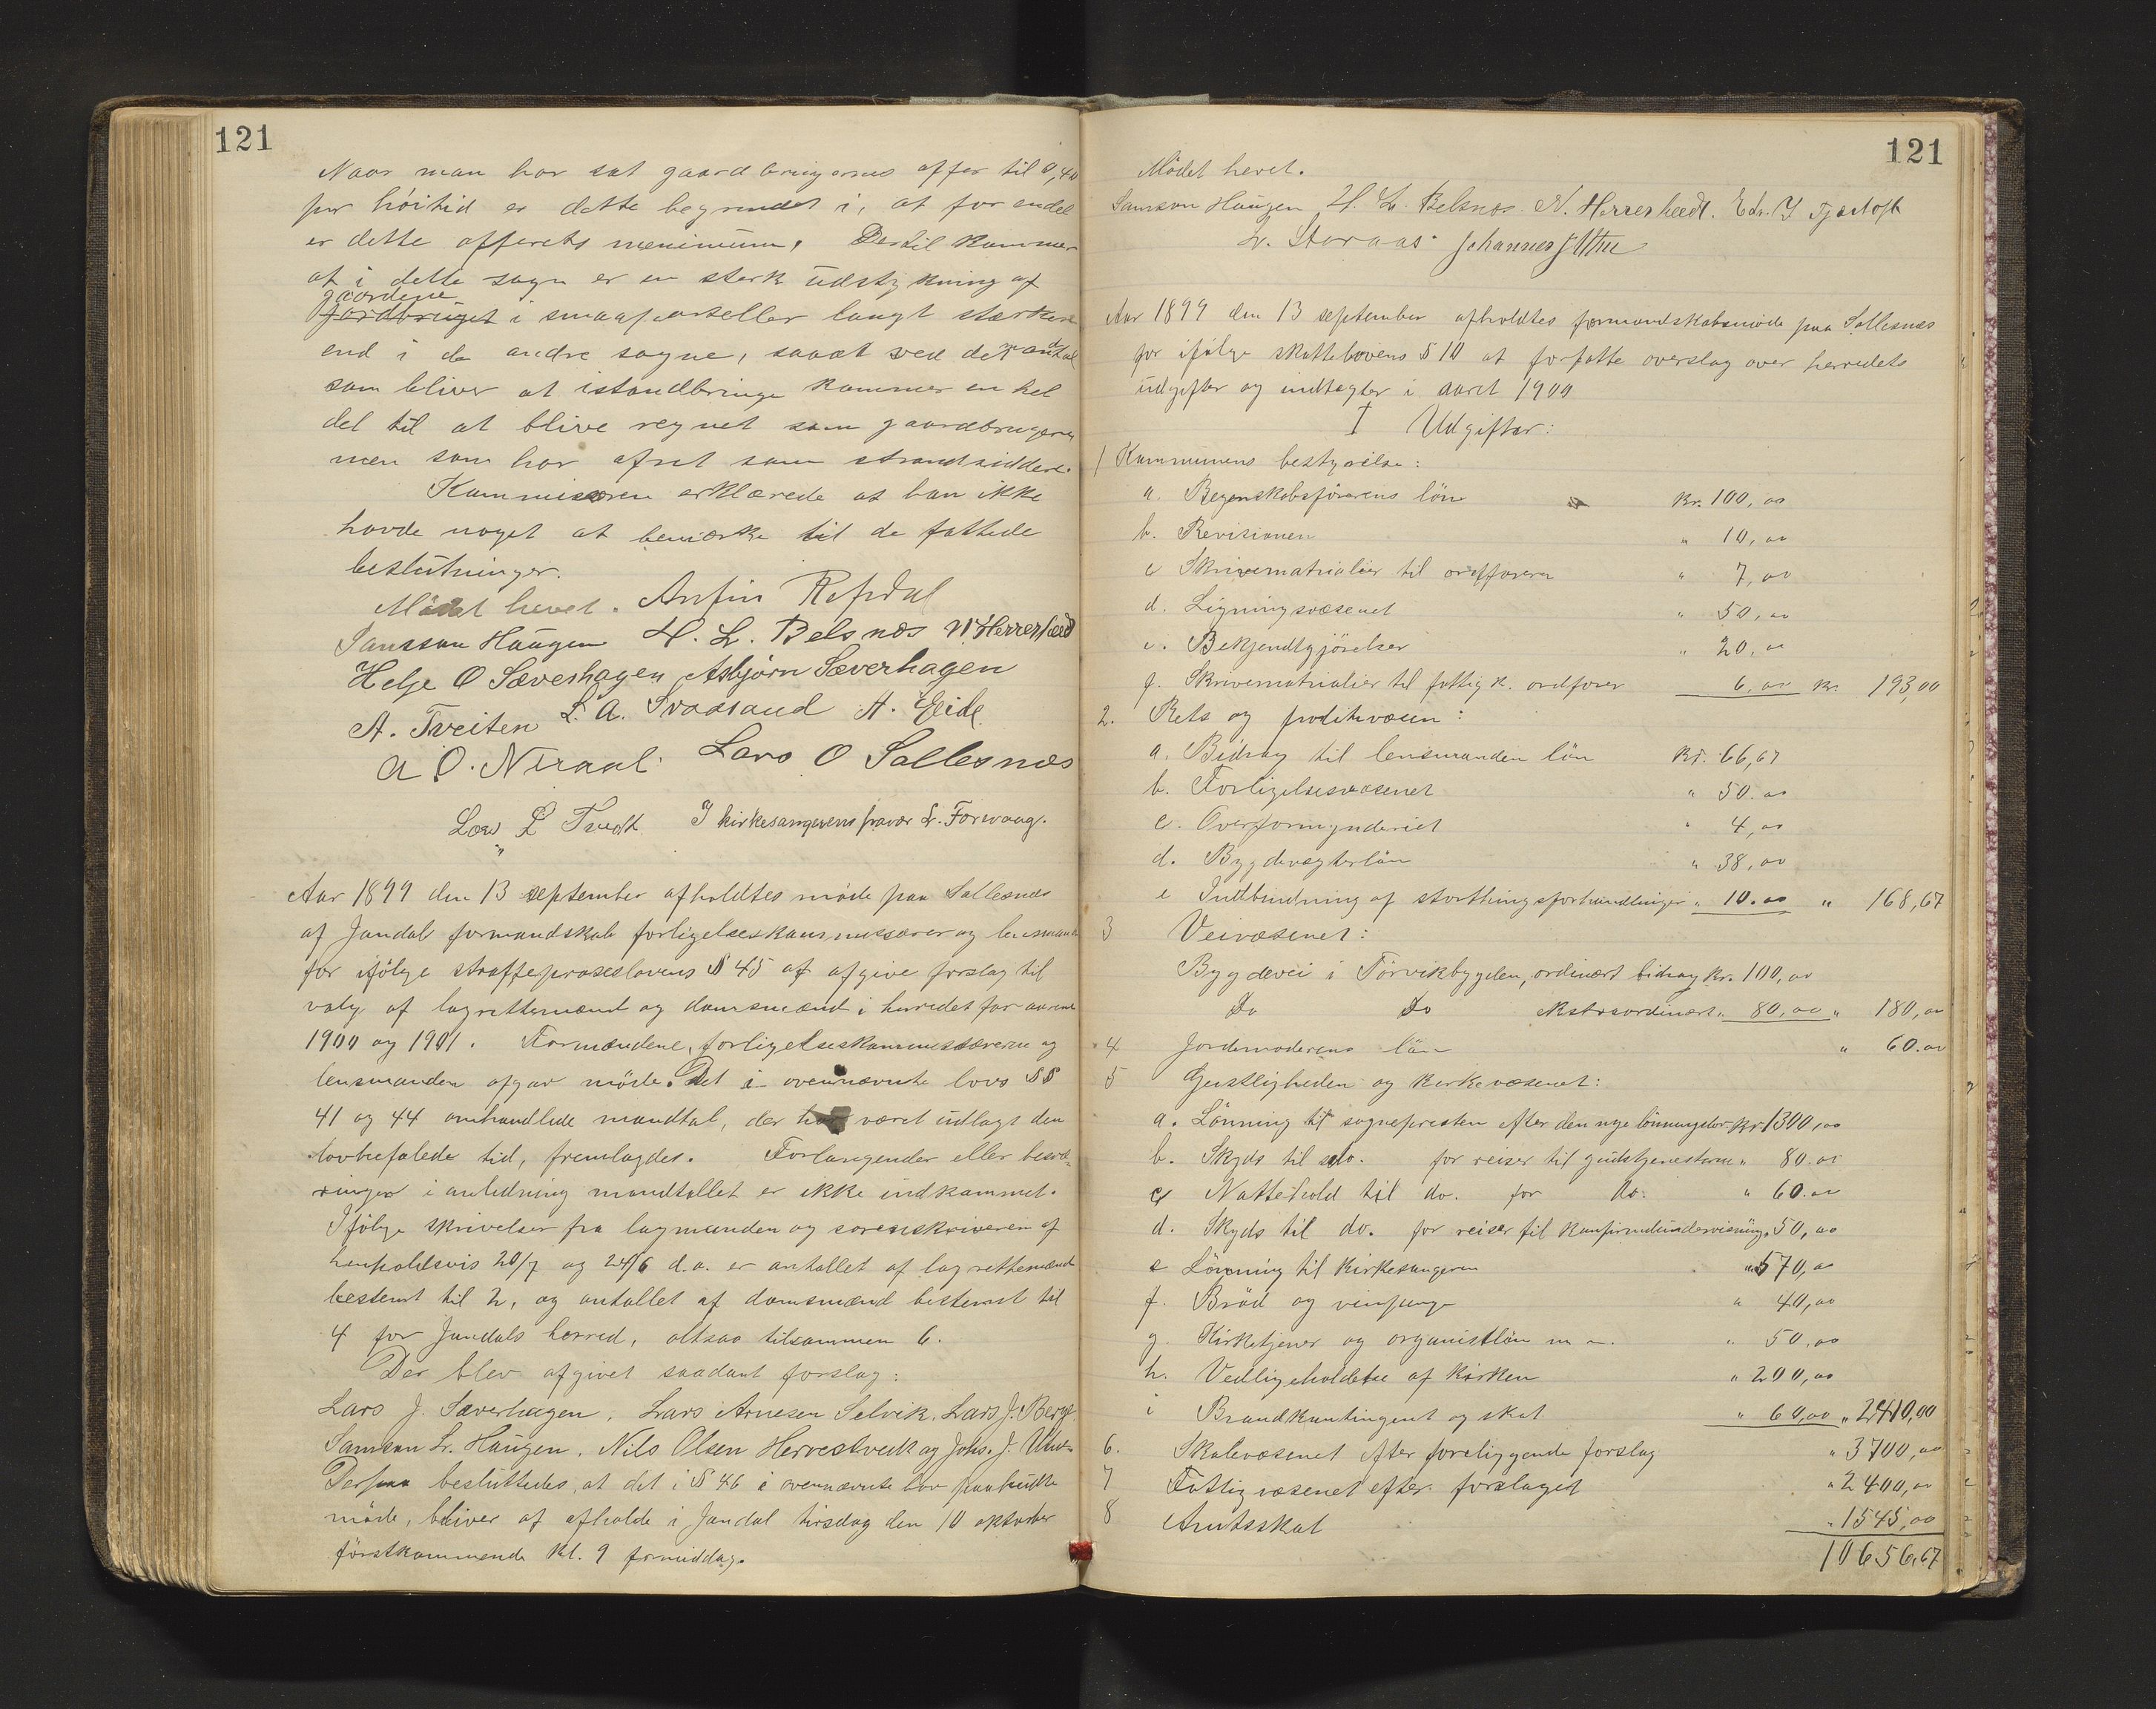 121
Naar man har sat gaardbrugernes offer til 0,40
pr høitid er dette begrundet i, at for endel
er dette offerets menimum. Dertil kommer
at i dette sogn er en sterk udstykning af
gaardene
jordbruget i smaaparseller langt stærkere
end i de andre sogne, saaat ved det
som bliver at istandbringe kommer en hel
del til at blive regnet som gaardbrugere
men som har ofret som strandsiddere.
Kommissæren erklærede at han ikke
havde noget at bemærke til de fattede
beslutninger.
Mødet hevet. Anfin Refsdal
Samson Haugen H. L. Belsnæs N Herrestved
Helje O Sæverhagen Asbjørn Sæverhagen
A. Tveiten L. A. Svaasand A. Eide
A O. Neraal. Lars O Sallesnæs
Lars L Tvedt I kirkesangerens fravær L. Førevaag.
Aar 1899 den 13 september afholdtes møde paa Sallesnæs
af Jondal formandskab forligelseskommissærer og lensmand
for ifølge straffeproseslovens § 45 at afgive forslag til
valg af lagrettemænd og domsmænd i herredet for aarene
1900 og 1901. Formændene, forligelseskommissærerne og
lensmanden afgav møde. Det i ovennævnte lovs §§
41 og 44 omhandlede mandtal, der har været udlagt den
lovbefalede tid, fremlagdes. Forlangender eller besvæ-
ringer i anledning mandtallet er ikke indkommet.
Ifølge skrivelser fra lagmanden og sorenskriveren af
henholdsvis 20/7 og 24/6 d.a. er antallet af lagrettemænd
bestemt til 2, og antallet af domsmænd bestemt til
4 for Jondals herred, altsaa tilsammen 6.
Der blev afgivet saadant forslag:
Lars J. Sæverhagen, Lars Arnesen Selvik, Lars J. Berge
Samson L. Haugen, Nils Olsen Herrestvedt og Johs. J. Utne
Derpaa besluttedes, at det i § 46 i ovennævnte lov paabudte
møde, bliver at afholde i Jondal tirsdag den 10 oktober
førstkommende kl. 9 formiddag.
121
Mødet hevet.
Samson Haugen H. L. Belsnæs. N. Herrestvedt. Edv. J Tjostofs
L. Storaas Johannes J Utne
Aar 1899 den 13 september afholdtes formandskabsmøde paa Sallesnæs
for ifølge skattelovens § 10 at forfatte overslag over herredets
udgifter og indtægter i aaret 1900
I Udgifter:
1 Kommunens bestyrelse:
a. Regenskabsførerens løn Kr. 100,00
b. Revisionen " 10,00
c Skrivematrialier til ordføreren " 7,00
d. Ligningsvæsenet " 50,00
e. Bekjendtgjørelser " 20,00
f. Skrivematrialier til fattigk. ordfører 6,00 Kr. 193,00
2. Rets og politivæsen:
a. Bidrag til lensmanden løn Kr. 66,67
b. Forligelsesvæsenet " 50.00
c. Overformynderiet " 4,00
d. Bygdevægterløn " 38,00
e Indbindning af storthingsforhandlinger " 10.00 " 168,67
3 Veivæsenet:
Bygdevei i Torvikbygden, ordinært bidrag Kr. 100,00
Do Do ekstraordinært " 80,00 " 180,00
4 Jordemoderens løn " 60.00
5 Geistligheden og kirkevæsenet:
a. Lønning til sognepresten efter den nye lønningslov Kr 1300,00
b. Skyds til do. for reiser til gudstjenesterne " 80.00
c Nattehold til do. for do. " 60.00
d. Skyds til do. for reiser til konfirmdundervisning " 50,00
e Lønning til kirkesangeren " 570,00
f. Brød og vinpenge " 40,00
g. Kirketjener og organistløn m m. " 50,00
h. Vedligeholdelse af kirken " 200,00
i Brandkontingent og skat " 60,00 " 2410,00
6. Skolevæsenet efter foreliggende forslag " 3700,00
7 Fattigvæsenet efter forslaget " 2400,00
8 Amtsskat " 1545,00
10656,67